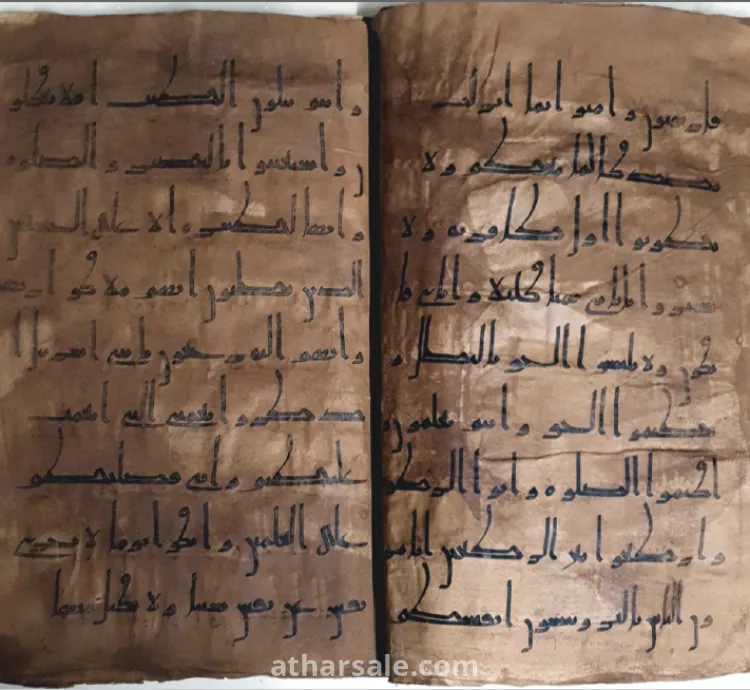 فارهبون وامنوا بما انزلت
مصدقا لما معكم ولا
تكونوا اول كافر به ولا
تشتروا باياتي ثمنا قليلا واياي فا
تقون ولا تلبسوا الحق بالبطل و
تكتموا الحق وانتم تعلمون
اقيموا الصلوه واتوا الزكو
واركعوا مع الركعين اتامر
ون الناس بالبر وتنسون انفسكم
وانتم تتلون الكتب افلا تعقلو
ن واستعينوا بالصبر والصلوه
وانها لكبيره الا على الخشعين
الذين يظنون انهم ملقوا ربهم
وانهم اليه رجعون يبني اسريل ا
ذكروا نعمتي التي انعمت
عليكم واني فضلتكم
على العلمين واتقوا يوما لا تجزي
نفس عن نفس شيا ولا يقبل منها
atharsale.com